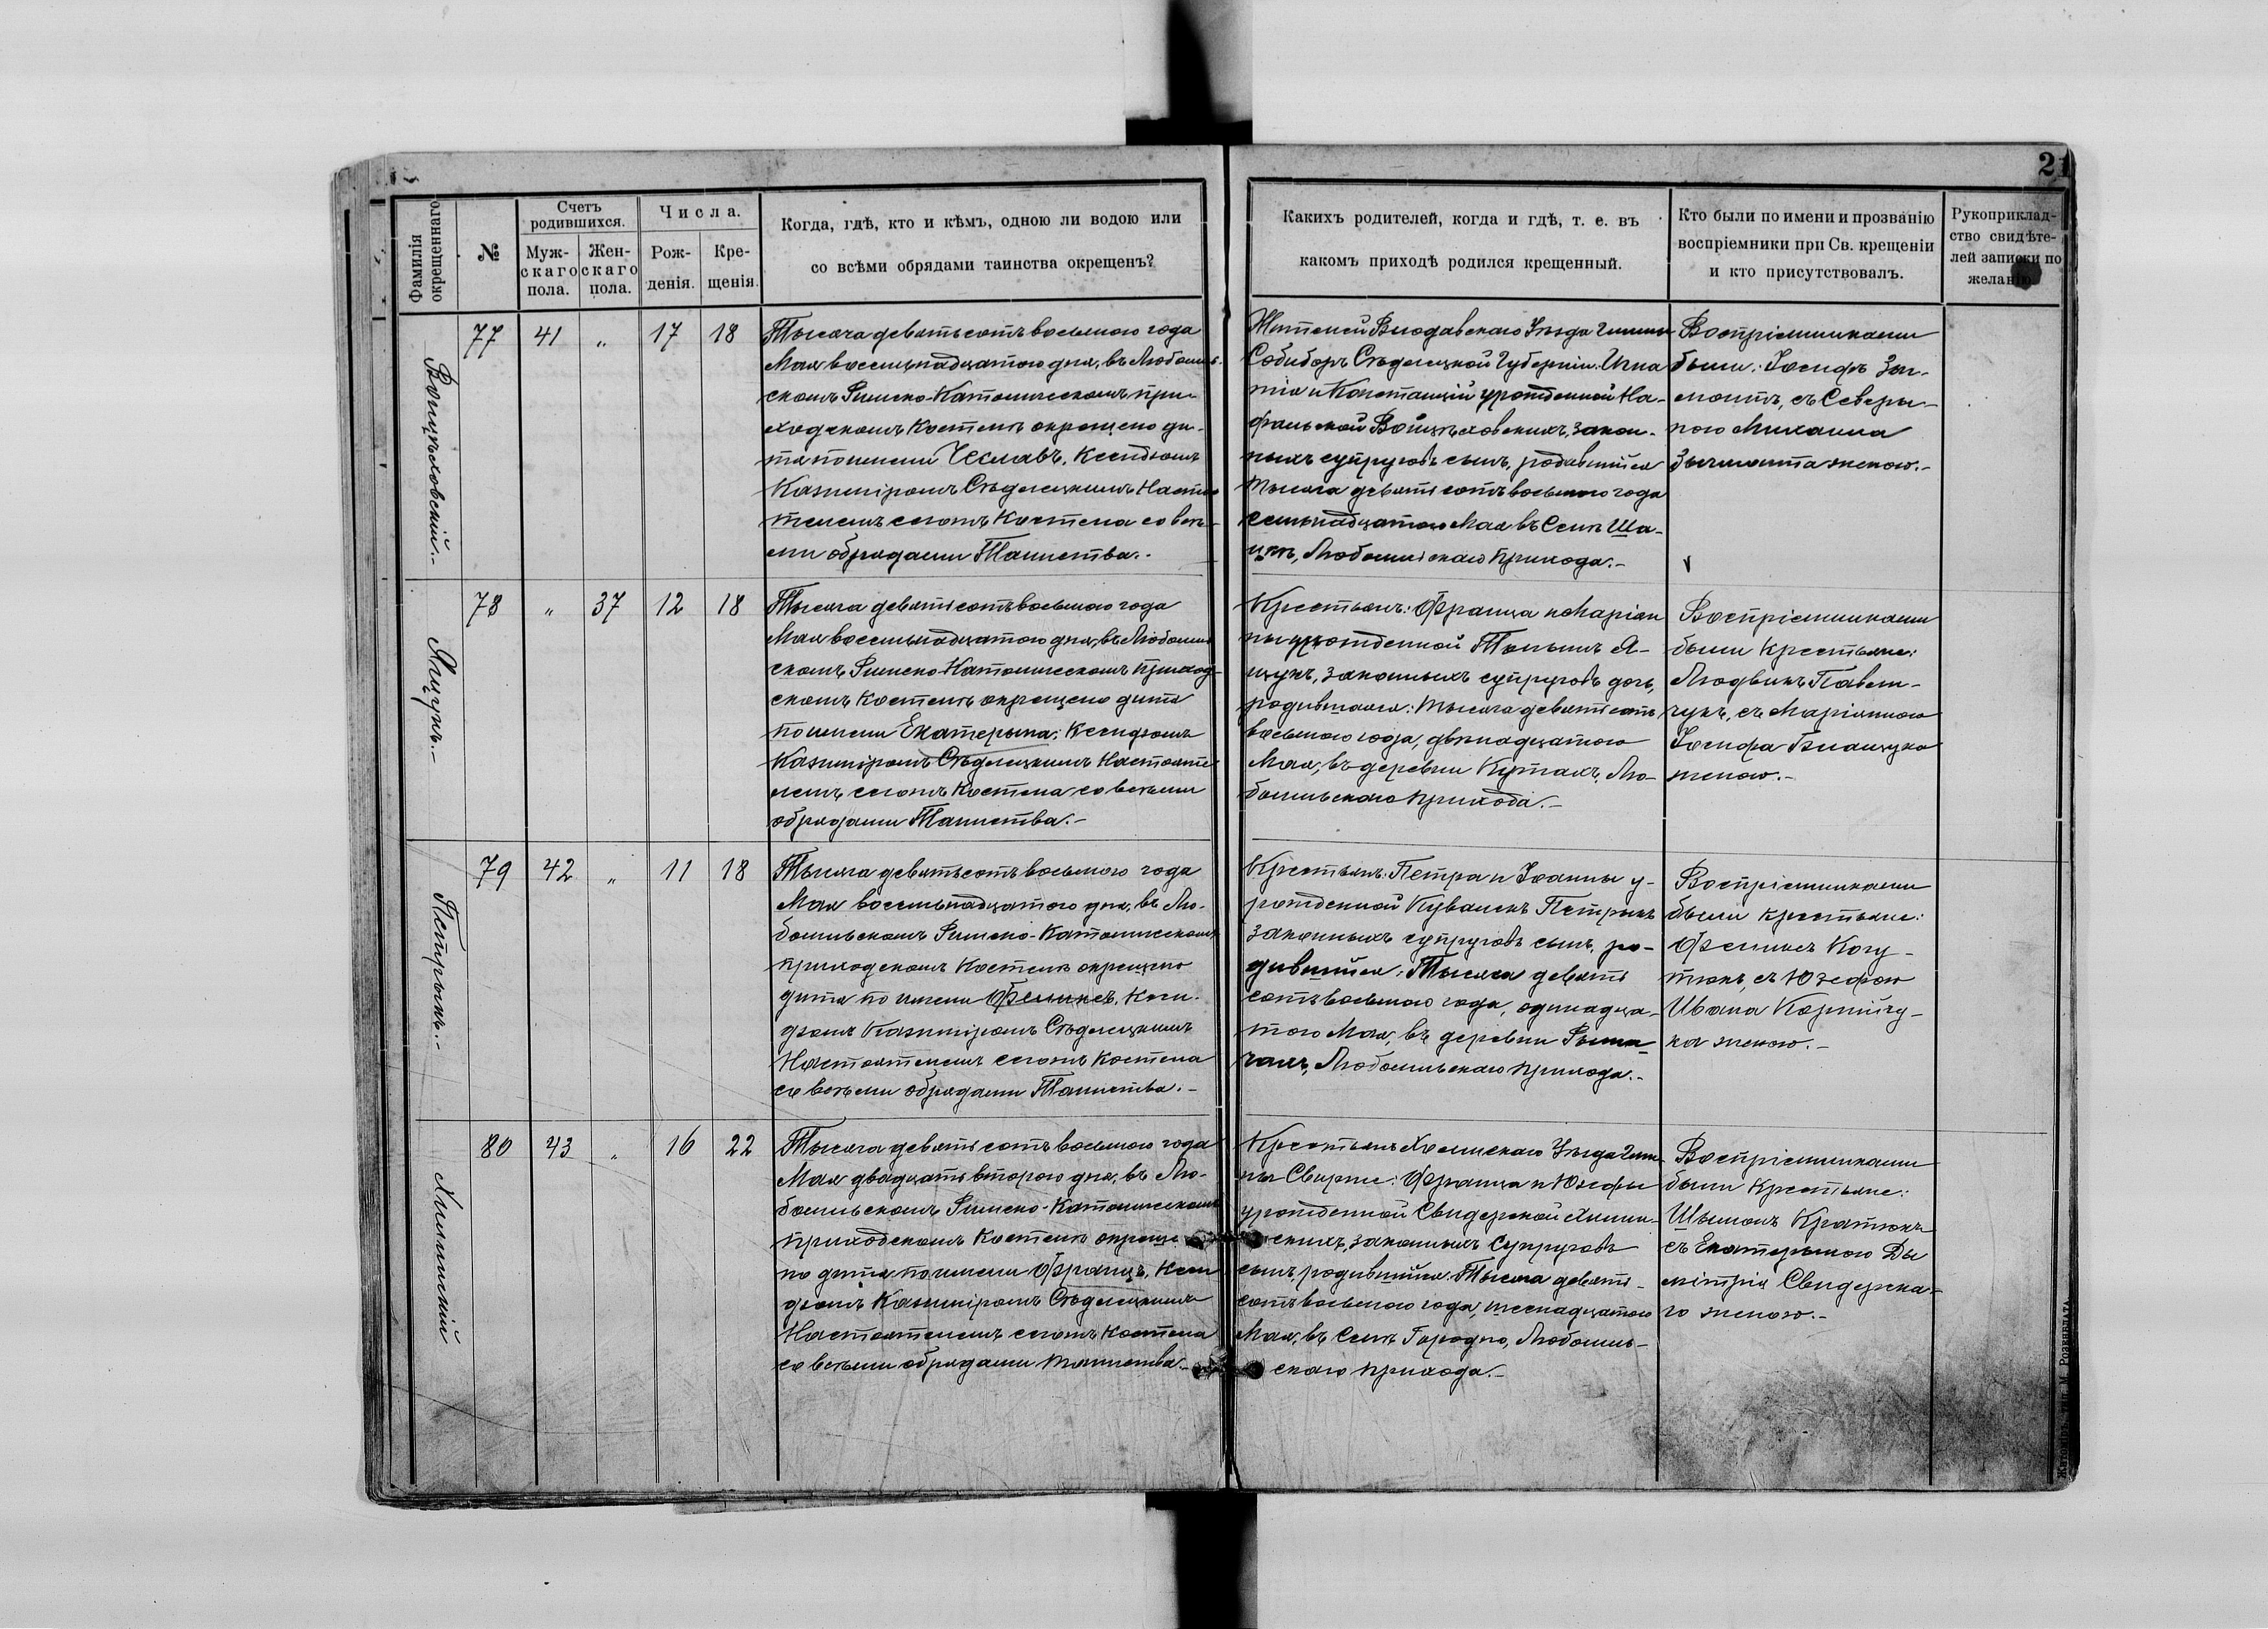 21
Фамилія окрещеннаго
№
Счетъ родившихся.
Муж-скаго пола.
Жен-скаго пола.
Числа.
Рож-денія.
Кре-щенія.
Когда, гдѣ, кто и кѣмъ, одною ли водою или
со всѣми обрядами таинства окрещенъ?
Какихъ родителей, когда и гдѣ, т. е. въ
какомъ приходѣ родился крещенный.
Кто были по имени и прозванію
воспріемники при Св. крещеніи
и кто присутствовалъ.
Рукоприклад-
ство свидѣте-
лей записки по
желанію.
Войцѣховскій.-
77 41 „ 17 18
Тысяча девятьсотъ восьмого года
Мая восемьнадцатого дня, въ Любомль-
скомъ Римско-Католическомъ при-
ходскомъ Костелѣ окрещено ди-
тя по имени Чеславъ, Ксендзомъ
Казиміромъ Сѣдлецкимъ Настоя-
телемъ сегожъ Костела со всѣ-
ми обрядами Таинства.-
Жителей Влодавскаго Уѣзда Гмины
Собиборъ Сѣдлецкой Губерніи: Игна
тія и Констанціи урожденной На-
фальской Войцѣховскихъ, закон-
ныхъ супруговъ сынъ, родившійся
тысяча девятьсотъ восьмого года
семьнадцатого Мая въ Селѣ Ша-
цкѣ, Любомльскаго прихода.-
Воспріемниками
были: Іосифъ Зы-
монтъ, съ Северы-
ною Михаила
Зыгмонта женою.-
Яцукъ.-
78 „ 37 12 18
Тысяча девятьсотъ восьмого года
Мая восемьнадцатого дня, въ Любомль
скомъ Римско-Католическомъ приход-
скомъ Костелѣ окрещено дитя
по имени Екатерына, Ксендзомъ
Казиміромъ Сѣдлецкимъ Настояте
лемъ сегожъ Костела со всѣми
обрядами Таинства.-
Крестьянъ: Франца и Маріан
ны урожденной Я-
цукъ, законныхъ супруговъ дочь,
родившаяся: тысяча девятьсотъ
восьмого года, двѣнадцатого
Мая, въ деревни Кутахъ, Лю-
бомльскаго прихода.-
Воспріемниками
были Крестьяне:
Людвикъ Павлн-
чукъ, съ Маріянною
Іосифа
женою.-
Петрыкъ.-
79 42 „ 11 18
Тысяча девятьсотъ восьмого года
Мая восемьнадцатого дня, въ Лю-
бомльскомъ Римско-Католическомъ
приходскомъ Костелѣ окрещено
дитя по имени Феликсъ, Ксен-
дзомъ Казиміромъ Сѣдлецкимъ
Настоятелемъ сегожъ Костела
со всѣми обрядами Таинства.-
Крестьянъ: Петра и Іоанны у-
рожденной Петрыкъ
законныхъ супруговъ сынъ, ро-
дившійся: Тысяча девять
сотъ восьмого года, одинадца-
того Мая, въ деревни Рыма-
чахъ, Любомльскаго прихода.-
Воспріемниками
были крестьяне:
Феликсъ Когу-
тюкъ, съ Юзефою
Ивана Корнійчу-
ка женою.-
Хилинскій
80 43 „ 16 22
Тысяча девятьсотъ восьмого года
Мая двадцать второго дня, въ Лю-
бомльскомъ Римско-Католическомъ
приходскомъ Костелѣ окреще-
но дитя по имени Францъ, Ксен
дзомъ Казиміромъ Сѣдлецкимъ
Настоятелемъ сегожъ Костела
со всѣми обрядами таинства.-
Крестьянъ Холмскаго Уѣзда Гми-
ны Свирже: Франца и Юзефы
урожденной Свидерской Хилин-
скихъ, законныхъ Супруговъ
сынъ, родившійся: Тысяча девять-
сотъ восьмого года, шеснадцатого
Мая, въ Селѣ Городно, Любомль-
скаго прихода.-
Воспріемниками
были Крестьяне:
Шымонъ Кратюкъ
съ Екатерыною Ды
митрія Свидерска-
го женою.-
Житомiръ, тип. М. Розенблата.